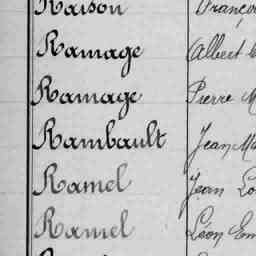 Raison
Ramage Albert
Ramage Pierre M
Rambault Jean Ma
Ramel Jean Lo
Ramel Léon Em